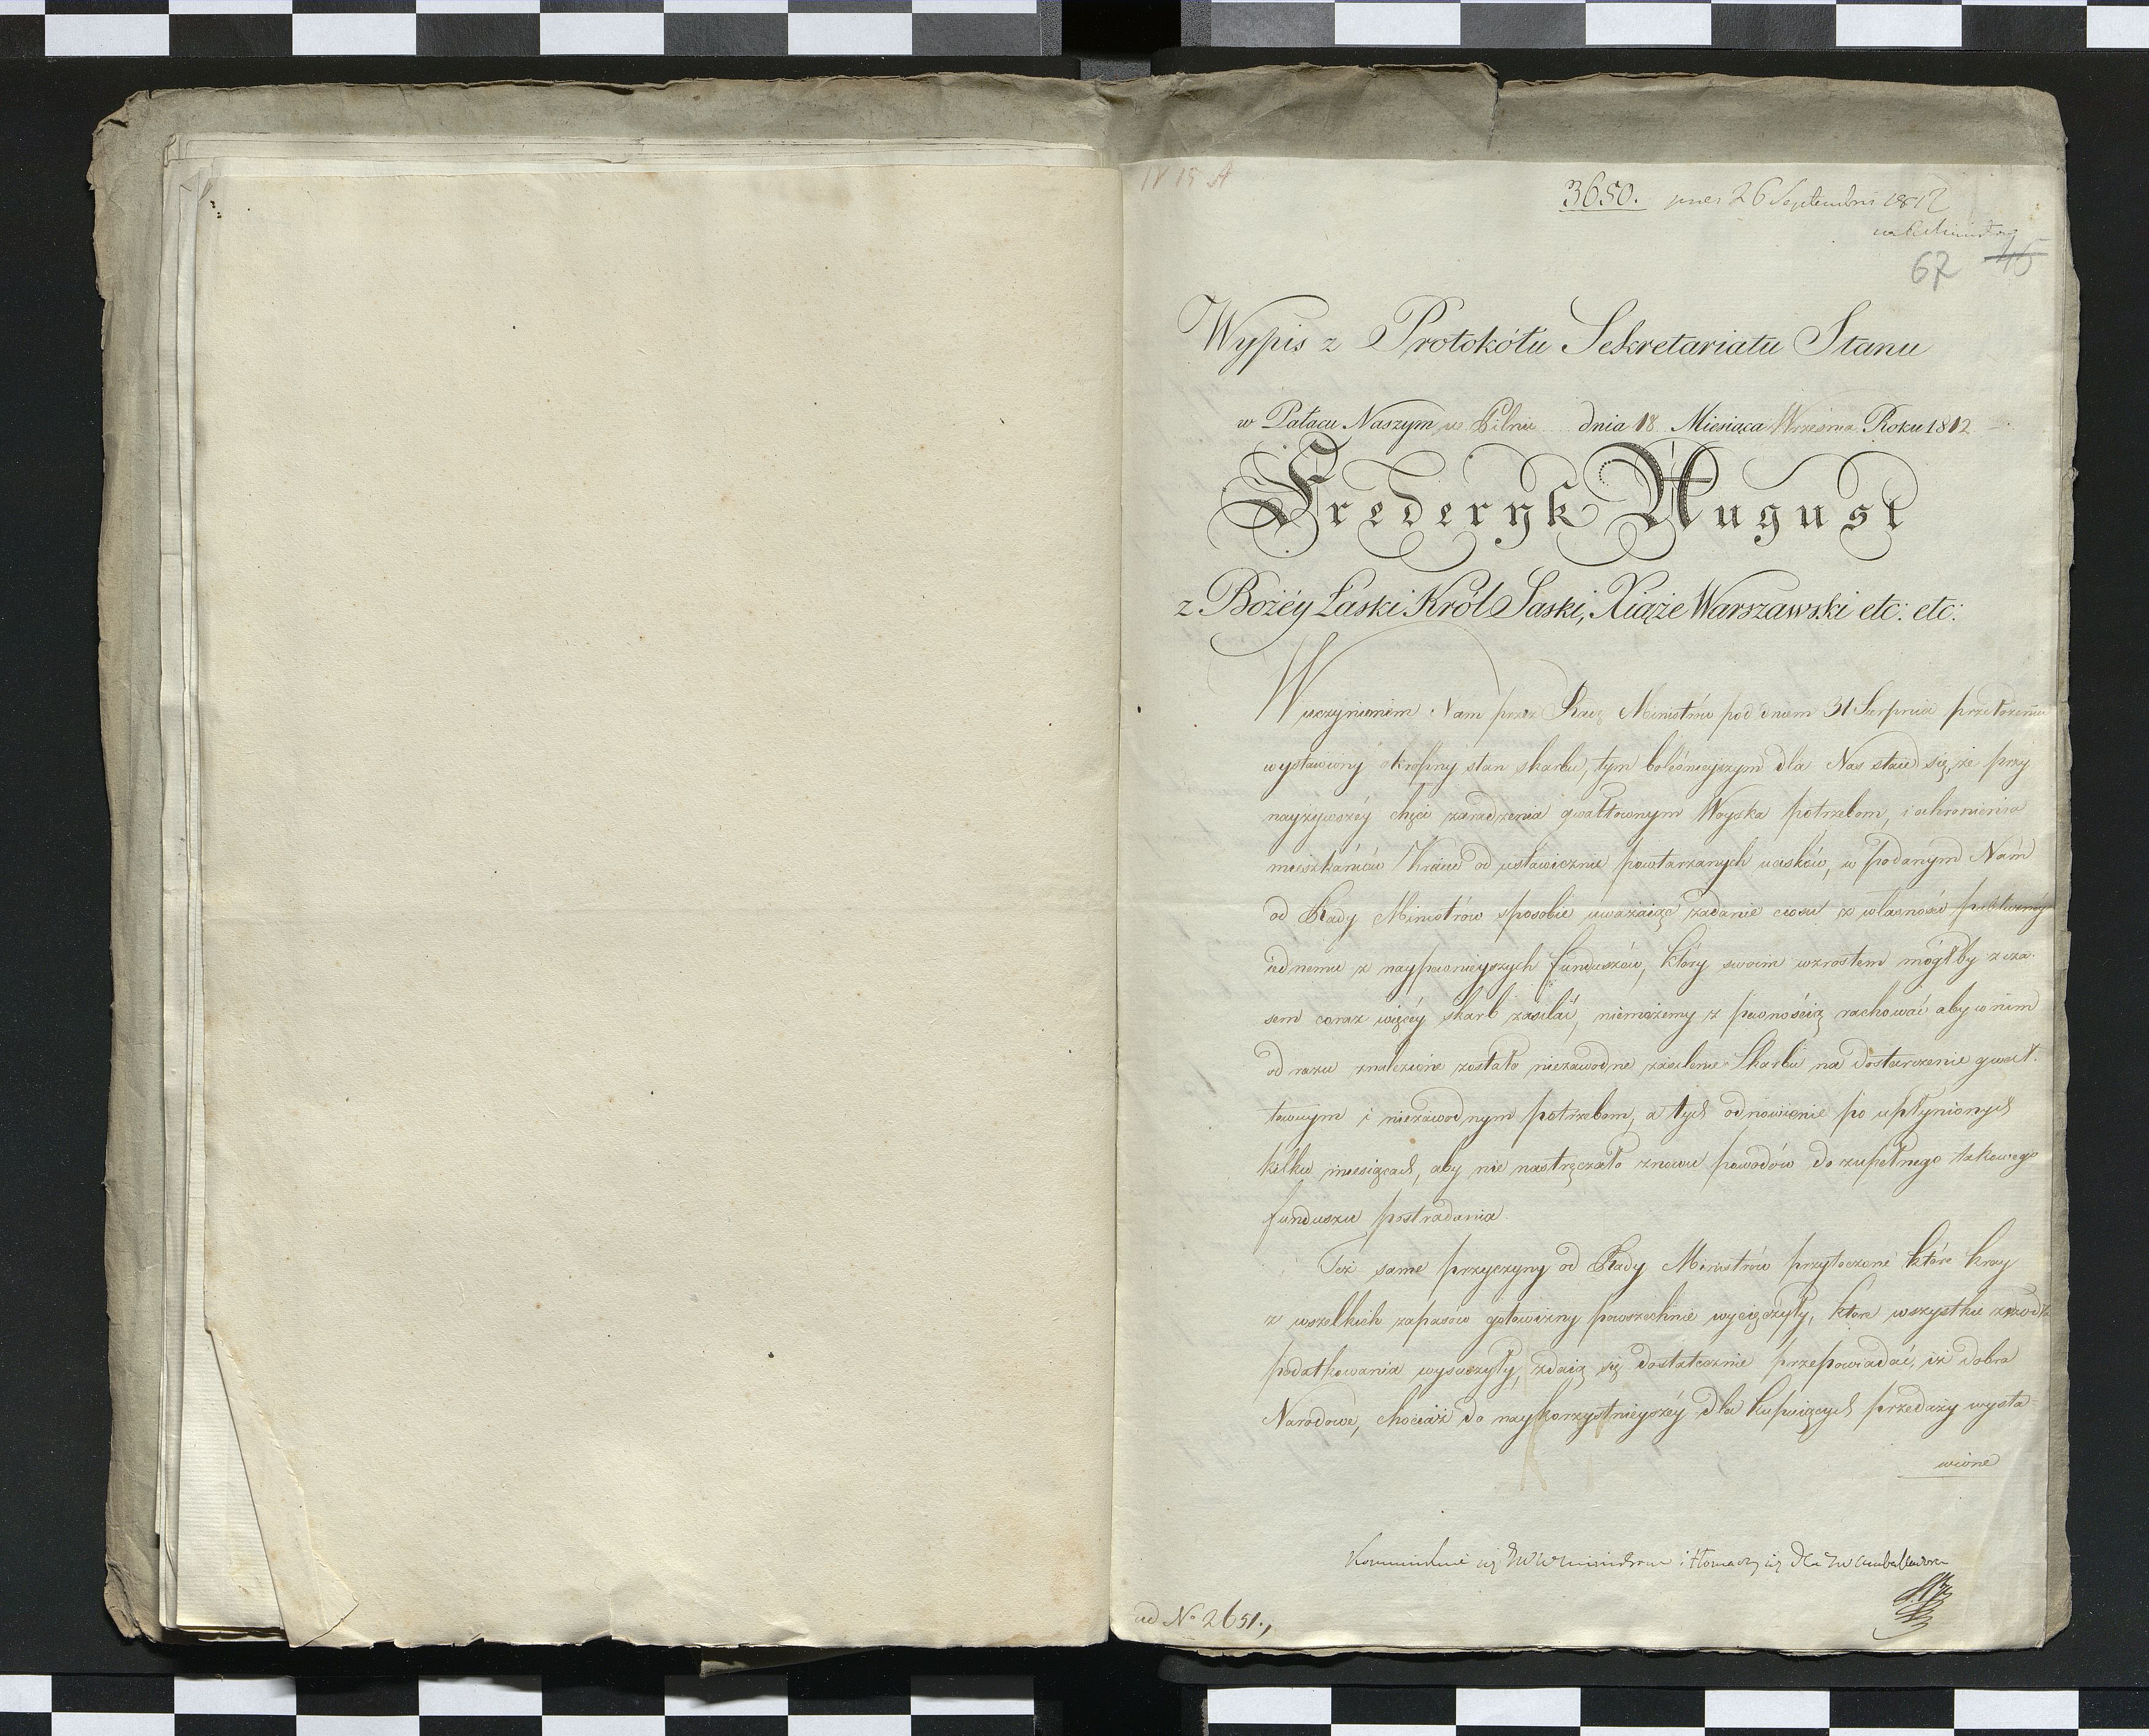 IV 15 A
3650. pres 26 Septembris 1812
67 45
Wypis z Protokółu Sekretariatu Stanu
w Pałacu Naszym w Pilnie dnia 18 Miesiąca Września Roku 1812
Frederyk August
z Bożéy Łaski Król Saski, Xiąże Warszawski etc: etc:
W uczynionem Nam przez Radę Ministrów pod dniem 31 Sierpnia przełożeniu
wystawiony okropny stan skarbu, tym boleśnieyszym dla Nas stał się, że przy
nayżywszéy chęci zaradzenia gwałtownym Woyska potrzebom, i ochronienia
mieszkańców Kraiu od ustawicznie powtarzanych ucisków, w podanym Nam
od Rady Ministrów sposobie uważaiąc zadanie ciosu z własności publicznéy
iednemu z naypewnieyszych funduszów, który swoim wzrostem mógłby z cza-
sem coraz więcéy skarb zasilać, niemożemy z pewnością rachować aby w nim
od razu znalezione zostało niezawodne zasilenie Skarbu na dostarczenie gwał-
townym i niezawodnym potrzebom, a tych odnowienie po upłynionych
kilku miesiącach, aby nie nastręczało znowu powodów do zupełnego takowego
funduszu postradania.
Też same przyczyny od Rady Ministrów przytoczone które kray
z wszelkich zapasów gotowizny powszechnie wycięczyły, które wszystkie źrzódła
podatkowania wysuszyły, zdaią się dostatecznie przepowiadać, iż dobra
Narodowe, chociaż do naykorzystnieyszéy dla kupuiących przedaży wysta
wione
ad No 2651.,